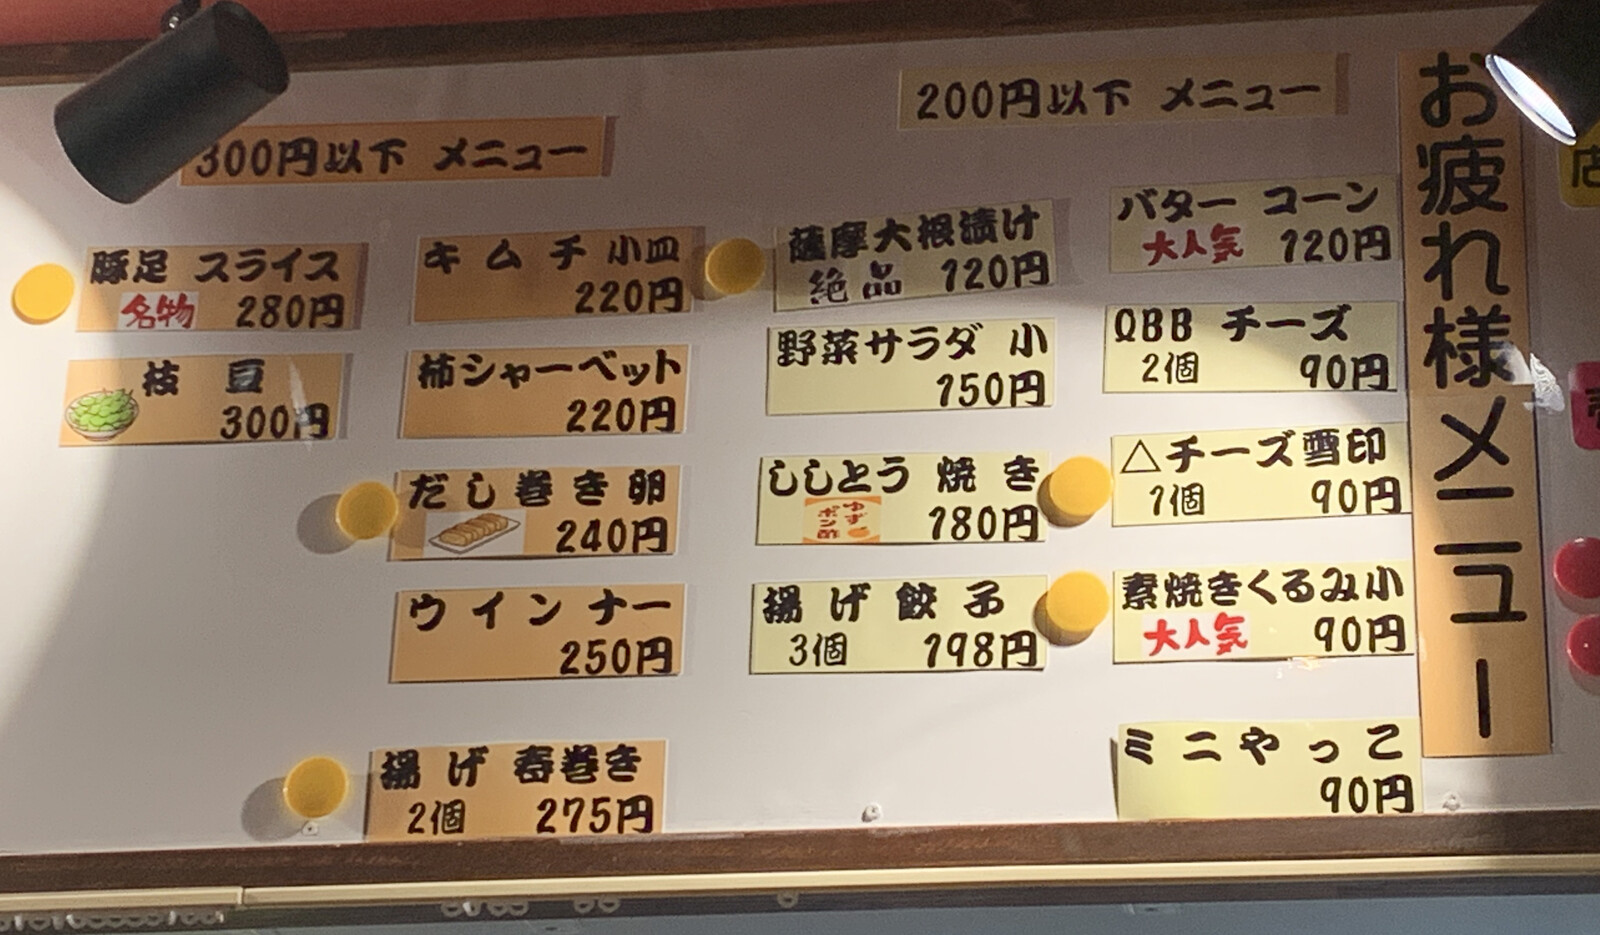 お疲れ様メニュー
200円以下 メニュー
バター コーン
大人気 120円
QBB チーズ
2個 90円
△チーズ雪印
1個 90円
素焼きくるみ小
大人気 90円
ミニやっこ
90円
薩摩大根漬け
絶品 120円
野菜サラダ 小
150円
ししとう 焼き
ゆず
ポン酢
180円
揚げ 餃子
3個 198円
300円以下 メニュー
キムチ 小皿
220円
柿シャーベット
220円
だし巻き卵
240円
ウインナー
250円
揚げ 春巻き
2個 275円
豚足 スライス
名物 280円
枝豆
300円
店